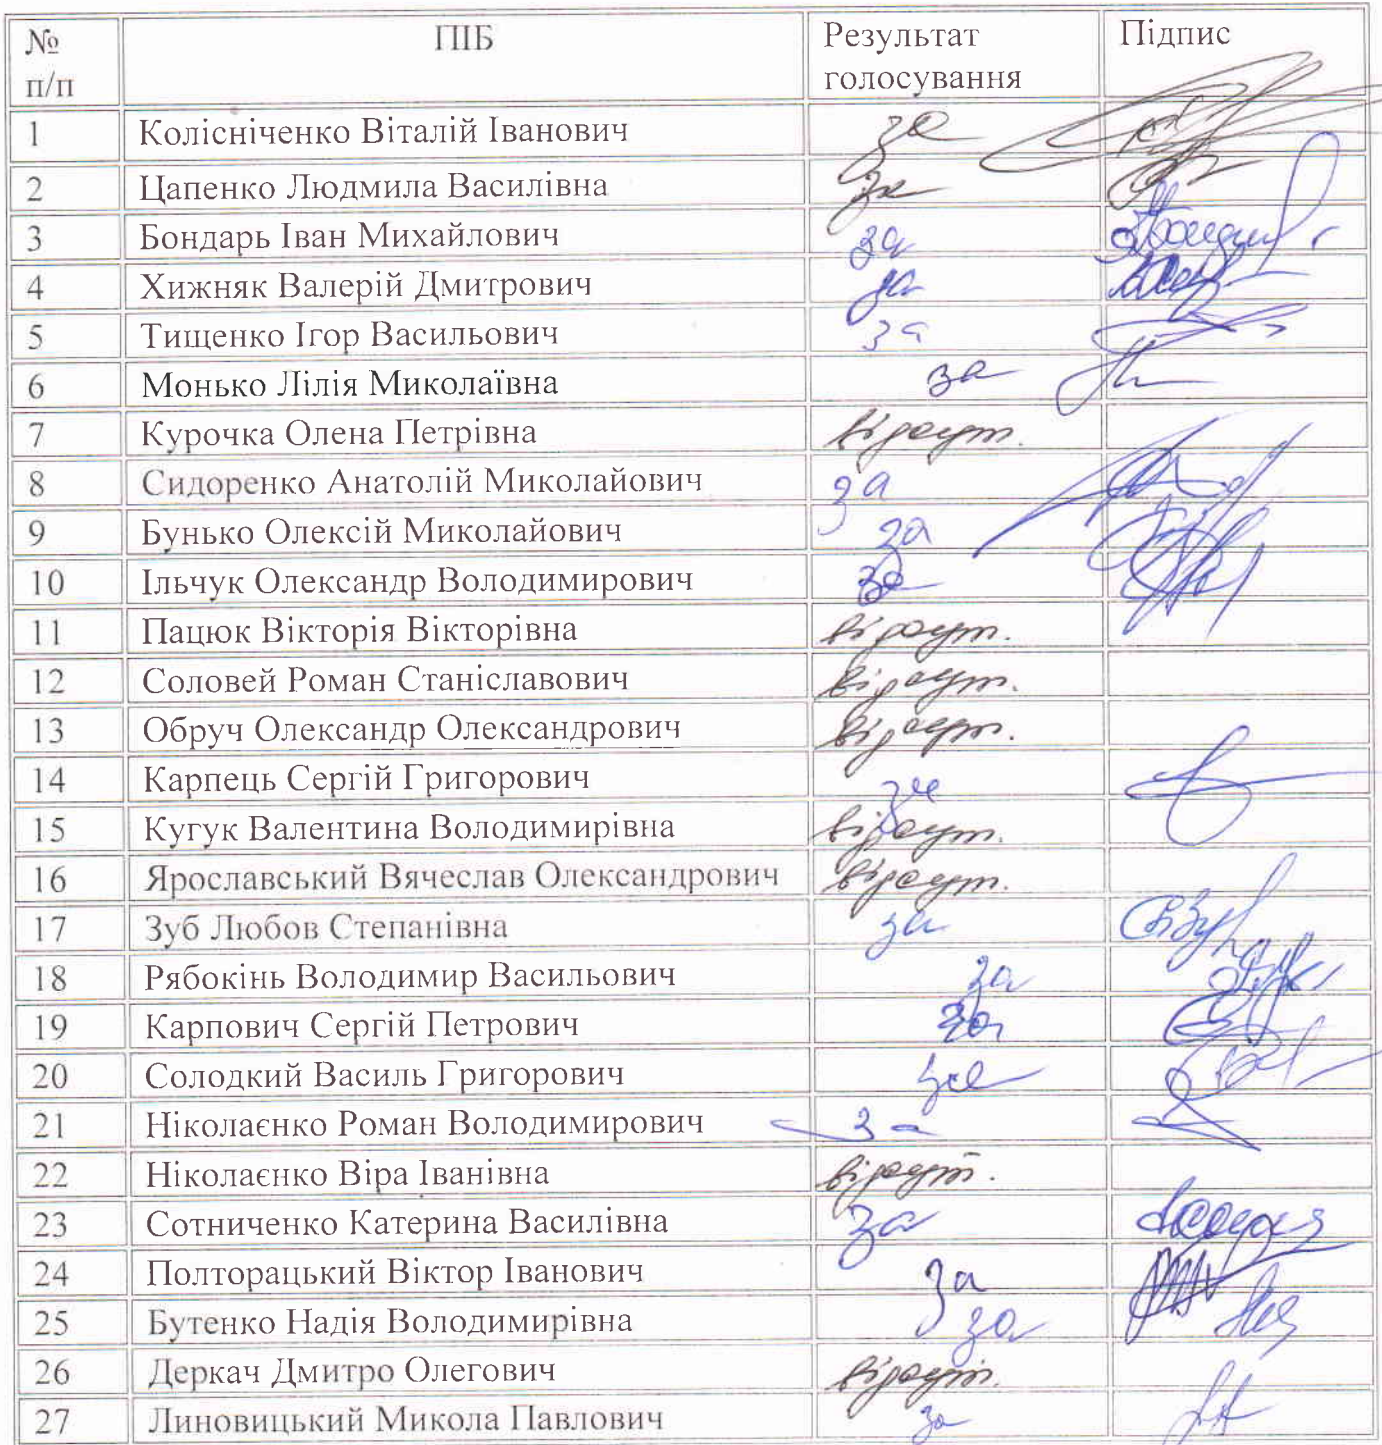 № п/п ПІБ Результат голосування Підпис
1 Колісніченко Віталій Іванович за
2 Цапенко Людмила Василівна за
3 Бондарь Іван Михайлович за
4 Хижняк Валерій Дмитрович за
5 Тищенко Ігор Васильович за
6 Монько Лілія Миколаївна за
7 Курочка Олена Петрівна відсут.
8 Сидоренко Анатолій Миколайович за
9 Бунько Олексій Миколайович за
10 Ільчук Олександр Володимирович за
11 Пацюк Вікторія Вікторівна відсут.
12 Соловей Роман Станіславович відсут.
13 Обруч Олександр Олександрович відсут.
14 Карпець Сергій Григорович за
15 Кугук Валентина Володимирівна відсут.
16 Ярославський Вячеслав Олександрович відсут.
17 Зуб Любов Степанівна за
18 Рябокінь Володимир Васильович за
19 Карпович Сергій Петрович за
20 Солодкий Василь Григорович за
21 Ніколаєнко Роман Володимирович за
22 Ніколаєнко Віра Іванівна відсут.
23 Сотниченко Катерина Василівна за
24 Полторацький Віктор Іванович за
25 Бутенко Надія Володимирівна за
26 Деркач Дмитро Олегович відсут.
27 Линовицький Микола Павлович за